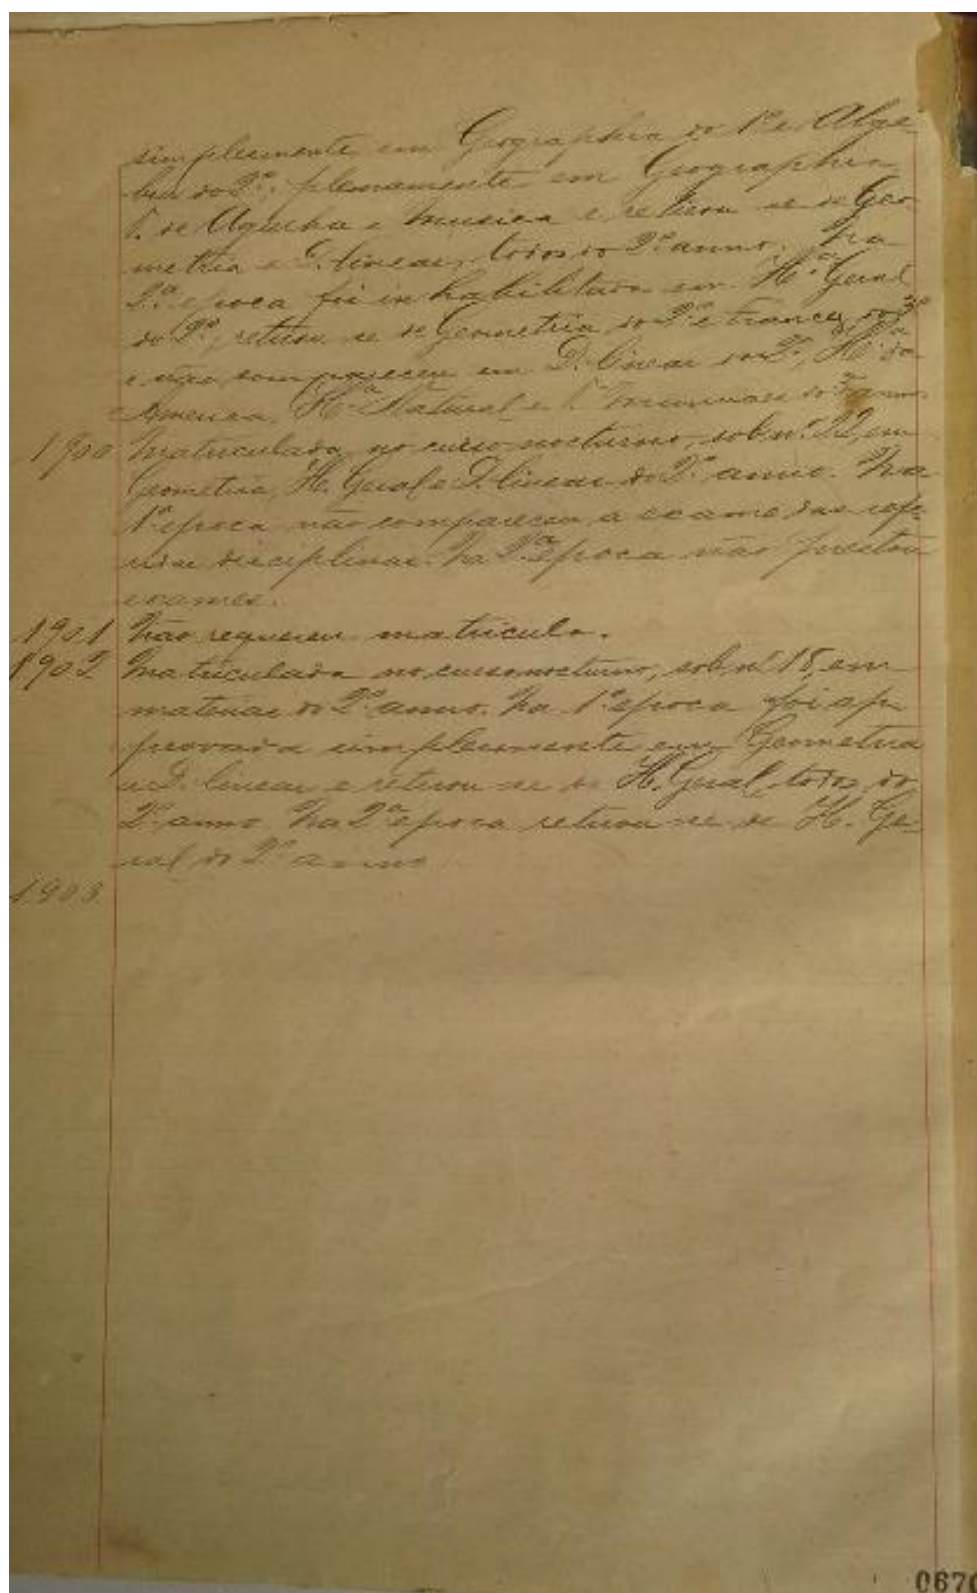 simplesmente em Geographia do 1º e Alge-
bra do 2º; plenamente em Geographia
T. de Agulha e Musica e retirou-se de Geo-
metria e D. linear, todos do 2º anno. Na
2ª epoca foi inhabilitada em Hª Geral
do 2º, retirou-se de Geometria do 2º e francez do 3º
e não compareceu em D. linear do 2º, Hª da
America, Hª Natural e T. manuaes do 3º anno.
1900 Matriculada no curso nocturno, sob nº 22, em
Geometria, H. Geral e D. linear do 2º anno. Na
1ª epoca não compareceu a exame das refe-
ridas disciplinas. Na 2ª epoca não prestou
exames.
1901 Não requereu matricula.
1902 Matriculada no curso nocturno, sob nº 18, em
materias do 2º anno. Na 1ª epoca foi ap-
provada simplesmente em Geometria
e D. linear e retirou-se de H. Geral, todos do
2º anno. Na 2ª epoca retirou-se de H. Ge-
ral do 2º anno
1903
067